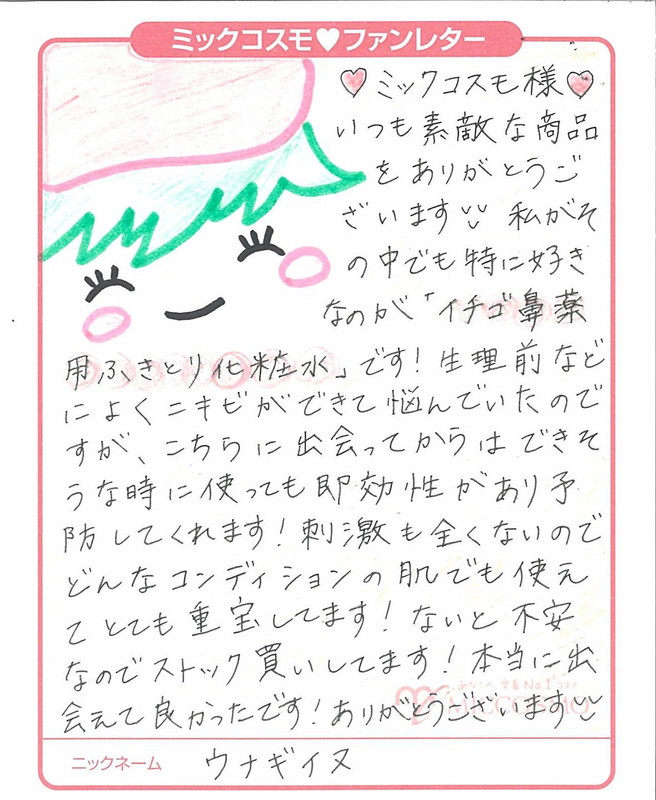 ミックコスモ♥ファンレター
♡ミックコスモ様♡
いつも素敵な商品
をありがとうご
ざいます 私がそ
の中でも特に好き
なのが「イチゴ鼻薬
用ふきとり化粧水」です！生理前など
によくニキビができて悩んでいたので
すが、こちらに出会ってからはできそ
うな時に使っても即効性があり予
防してくれます！刺激も全くないので
どんなコンディションの肌でも使え
てとても重宝してます！ないと不安
なのでストック買いしてます！本当に出
会えて良かったです！ありがとうございます
MICCOSMO
ニックネーム ウナギイヌ